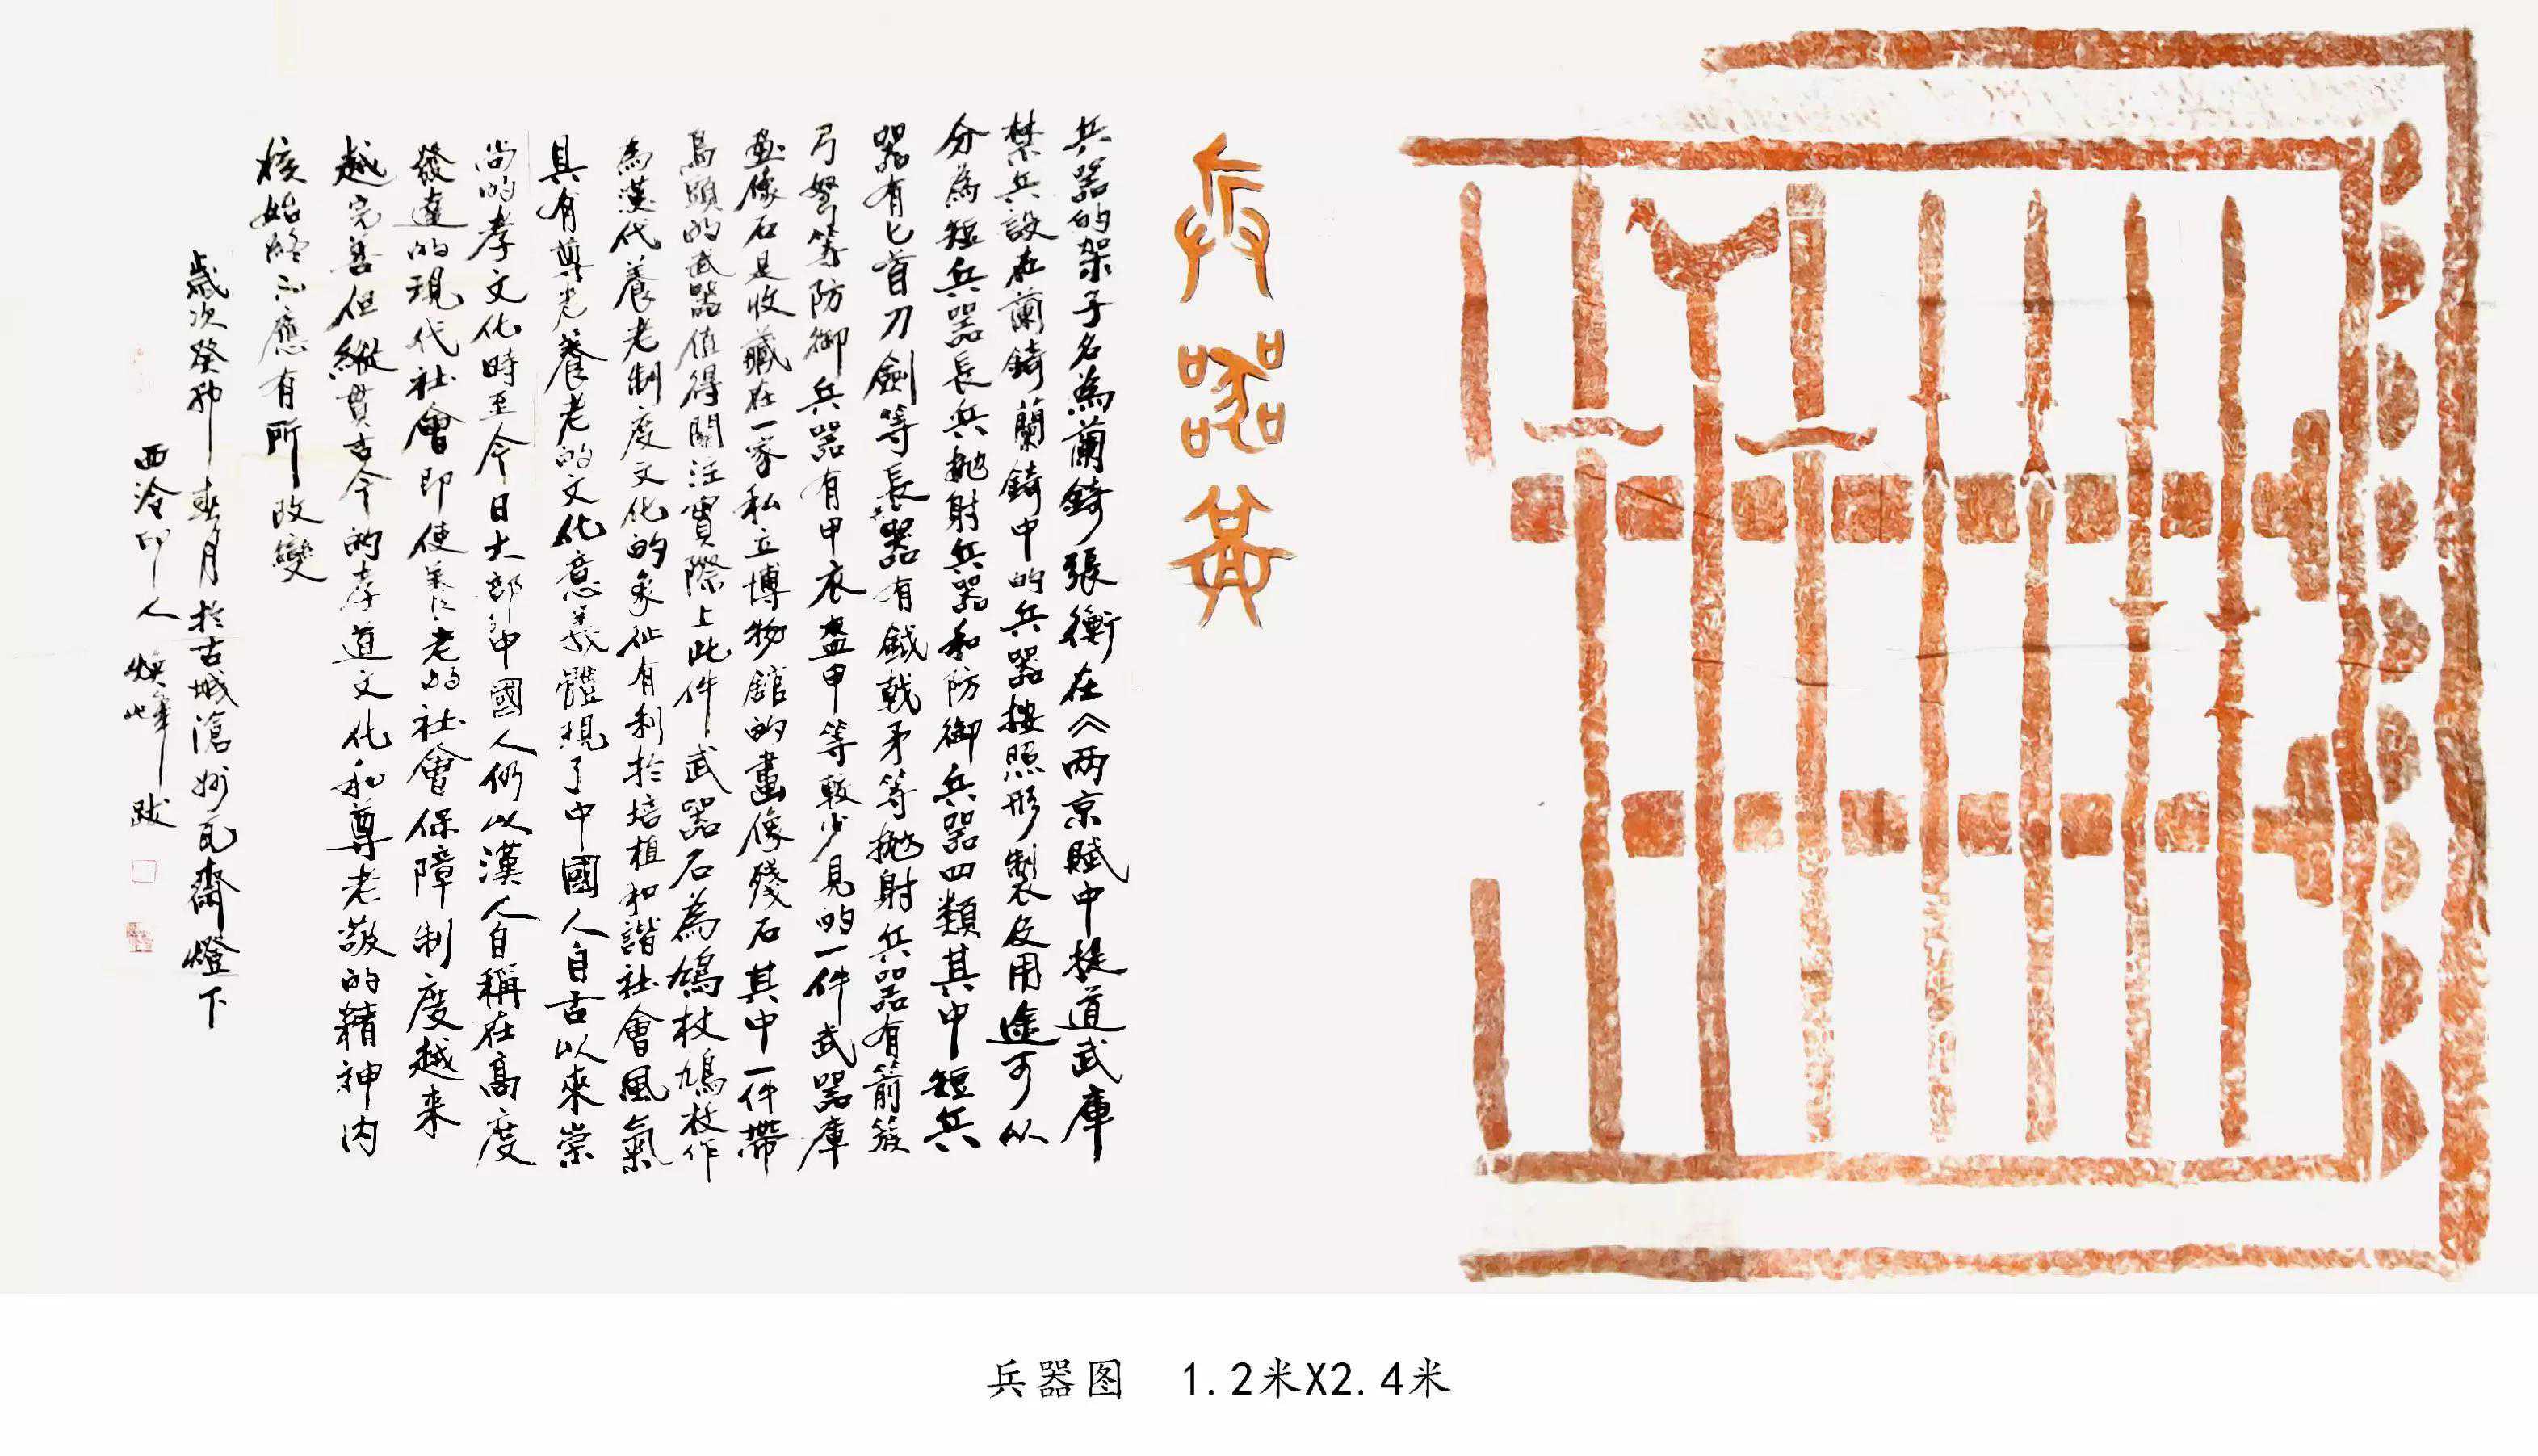 兵器其
兵器的架子名為蘭錡張衡在《兩京賦中提道武庫
禁兵設在蘭錡蘭錡中的兵器按照形製及用途可以
分為短兵器長兵拋射兵器和防御兵器四類其中短兵
器有匕首刀劍等長器有鉞戟矛等拋射兵器有箭簇
弓弩等防御兵器有甲衣盔甲等較少見的一件武器庫
畫像石是收藏在一家私立博物館的畫像殘石其中一件帶
鳥頭的武器值得關注實際上此件武器石為鳩杖鳩杖作
為漢代養老制度文化的象征有利於培植和諧社會風氣
具有尊老養老的文化意義體現了中國人自古以來崇
尚的孝文化時至今日大部中國人仍以漢人自稱在高度
發達的現代社會即使養老的社會保障制度越来
越完善但縱貫古今的孝道文化和尊老敬的精神内
核始終不應有所改變
歲次癸卯春月於古城滄州瓦齋燈下
西泠印人煥峰跋
兵器图 1.2米X2.4米